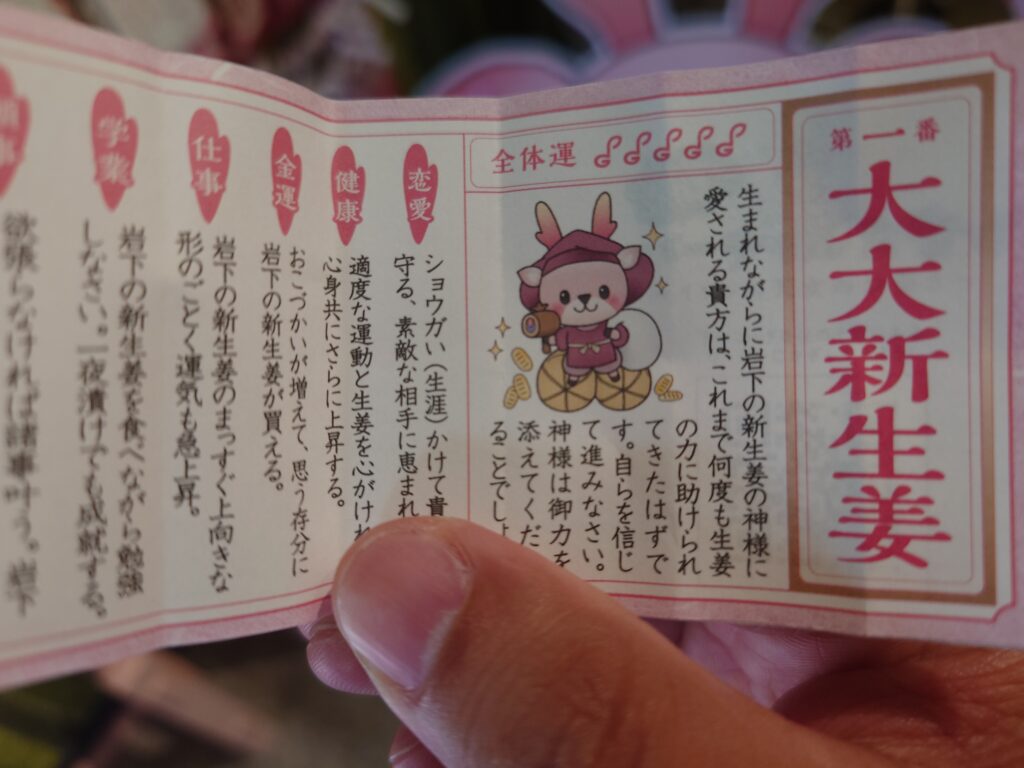 第一番
大大新生姜
全体運
生まれながらに岩下の新生姜の神様に
愛される貴方は、これまで何度も生姜
の力に助けられ
てきたはずで
す。自らを信じ
て進みなさい。
神様は御力を
添えてくだ
ることでしょ
恋愛
ショウガい(生涯)かけて貴
守る、素敵な相手に恵まれ
健康
適度な運動と生姜を心がけれ
心身共にさらに上昇する。
金運
おこづかいが増えて、思う存分に
岩下の新生姜が買える。
仕事
岩下の新生姜のまっすぐ上向きな
形のごとく運気も急上昇。
学業
岩下の新生姜を食べながら勉強
しなさい。一夜漬けでも成就する。
欲張らなければ諸事叶う。岩下